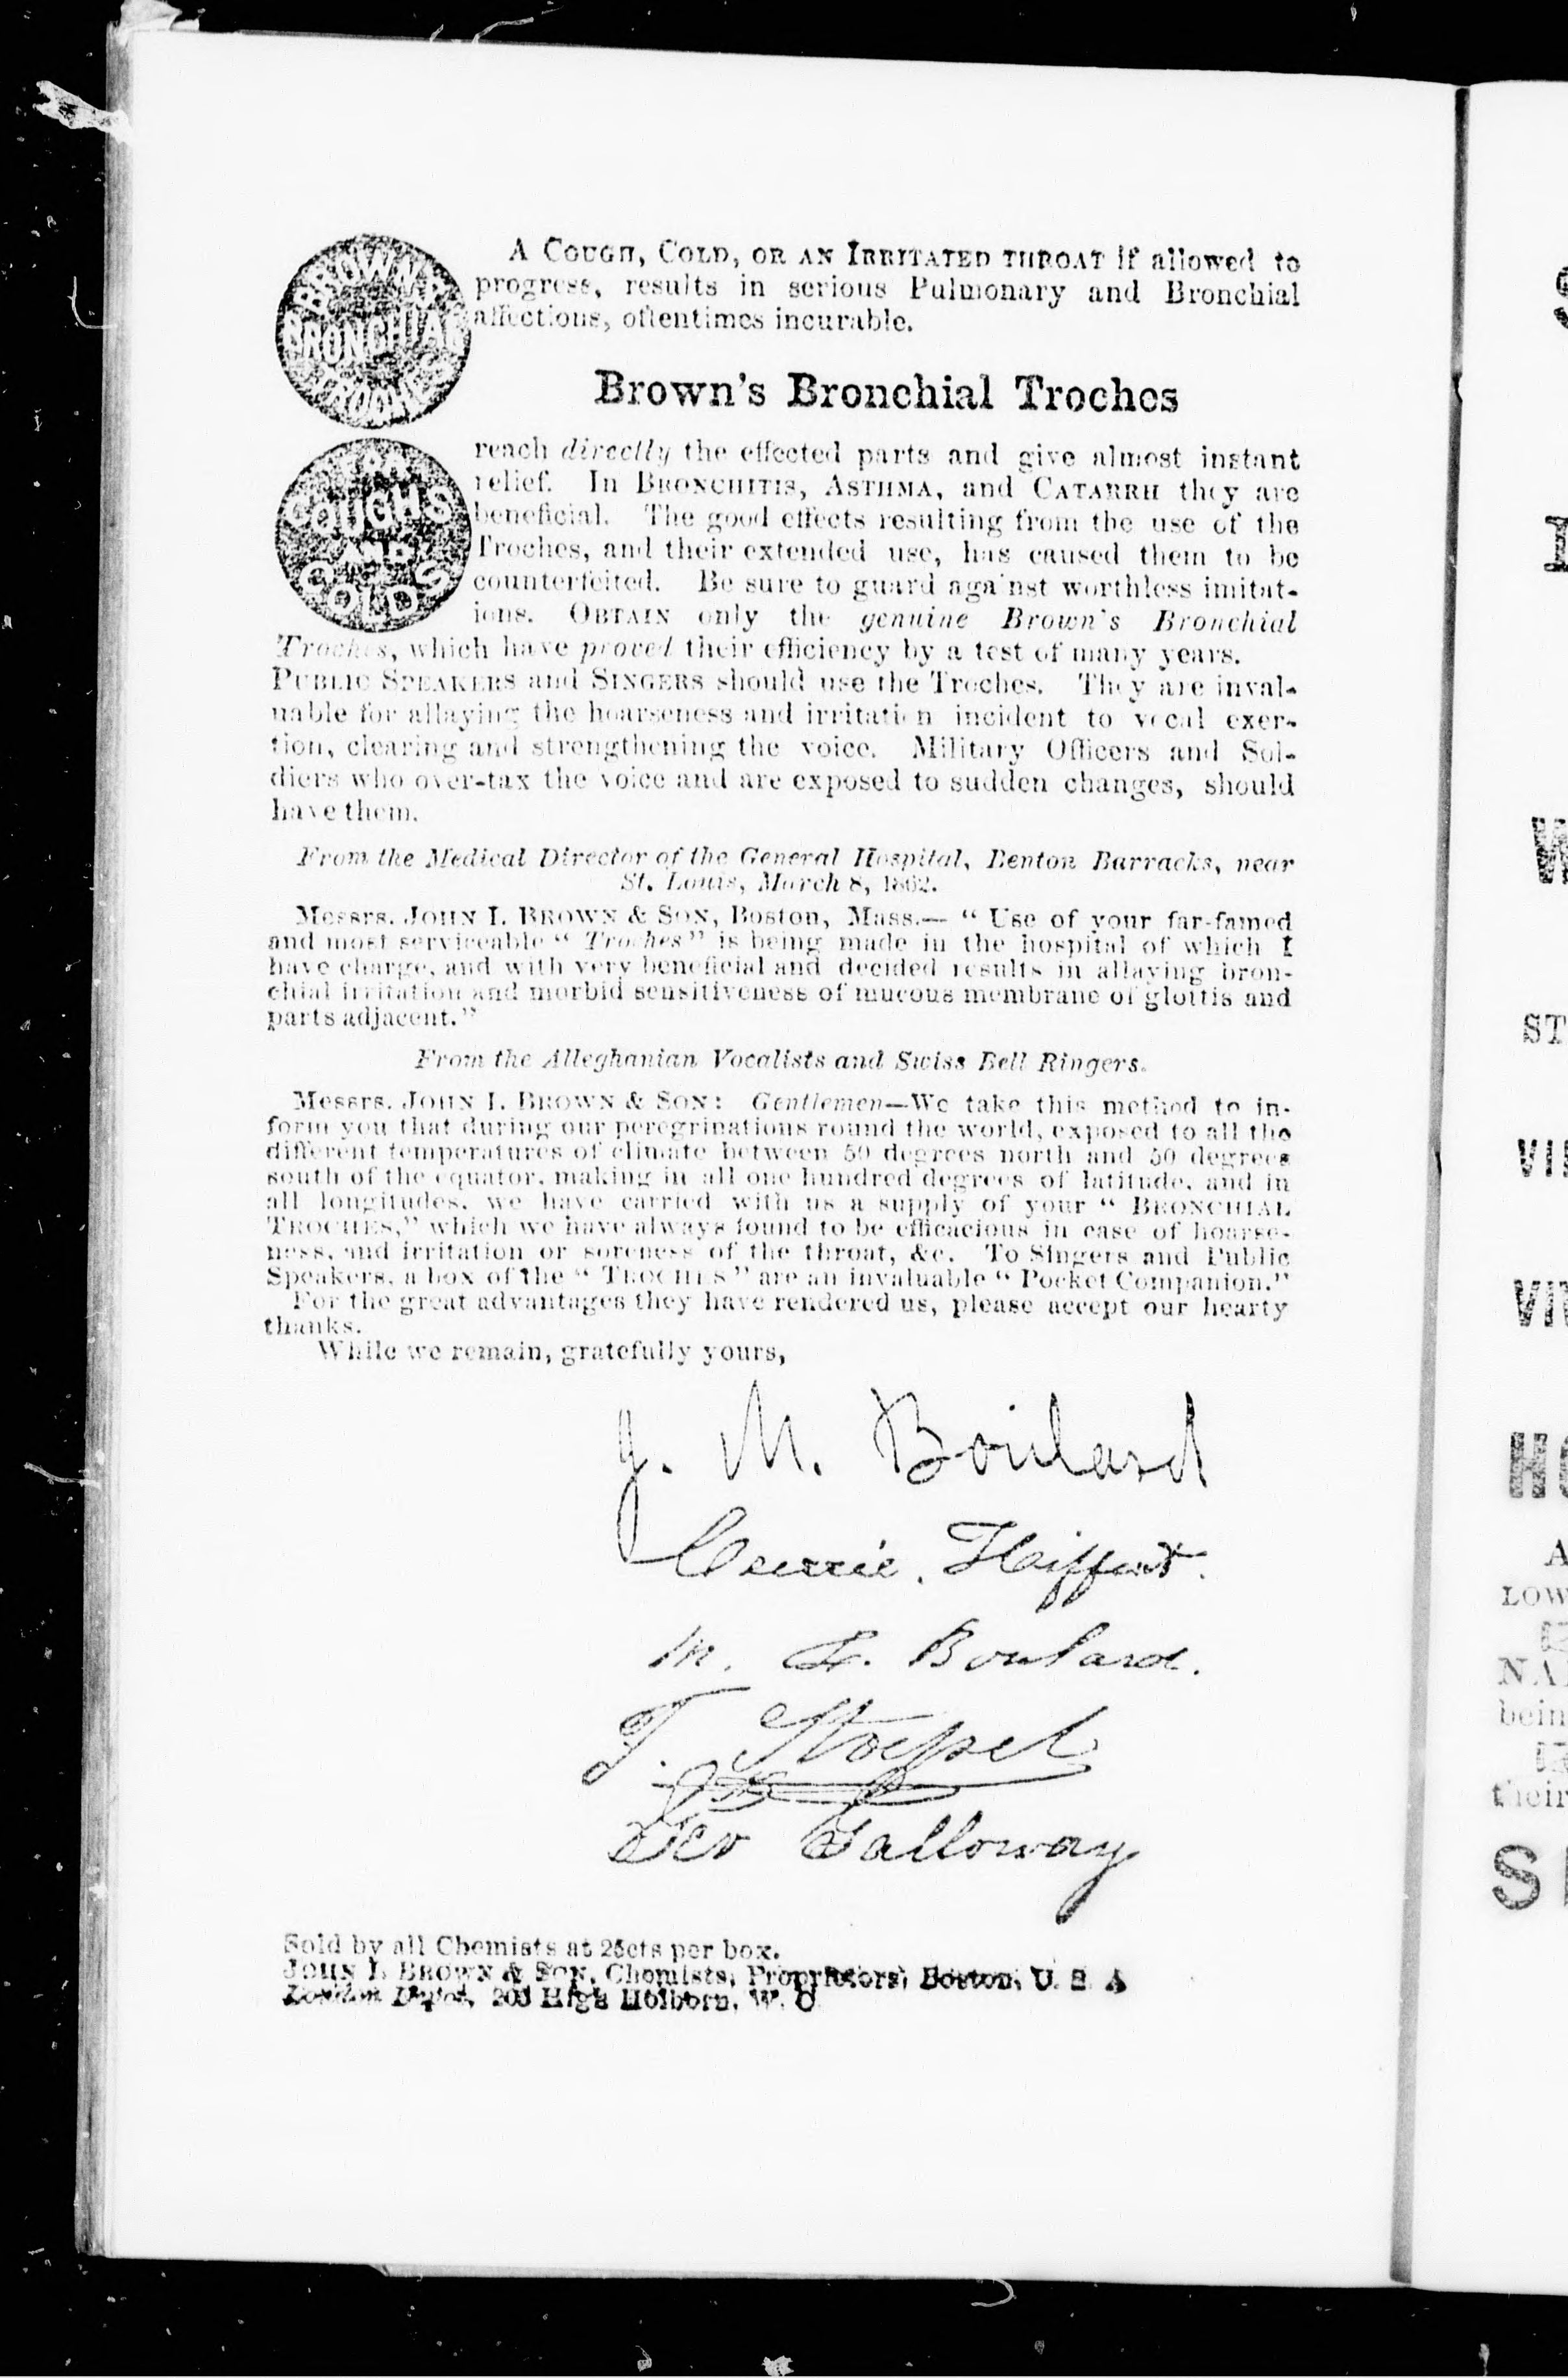 BROWN'S
BRONCHIAL
TROCHES
A COUGH, COLD, OR AN IRRITATED THROAT if allowed to
progress, results in serious Pulmonary and Bronchial
affections, oftentimes incurable.
Brown's Bronchial Troches
FOR
COUGHS
AND
COLDS
reach directly the effected parts and give almost instant
relief. In BRONCHITIS, ASTHMA, and CATARRH they are
beneficial. The good effects resulting from the use of the
Troches, and their extended use, has caused them to be
counterfeited. Be sure to guard against worthless imitat-
ions. OBTAIN only the genuine Brown's Bronchial
Troches, which have proved their efficiency by a test of many years.
PUBLIC SPEAKERS and SINGERS should use the Troches. They are inval-
uable for allaying the hoarseness and irritation incident to vocal exer-
tion, clearing and strengthening the voice. Military Officers and Sol-
diers who over-tax the voice and are exposed to sudden changes, should
have them.
From the Medical Director of the General Hospital, Benton Barracks, near
St. Louis, March 8, 1862.
Messrs. JOHN I. BROWN & SON, Boston, Mass.— “ Use of your far-famed
and most serviceable “ Troches” is being made in the hospital of which I
have charge, and with very beneficial and decided results in allaying bron-
chial irritation and morbid sensitiveness of mucous membrane of glottis and
parts adjacent.”
From the Alleghanian Vocalists and Swiss Bell Ringers.
Messrs. JOHN I. BROWN & SON: Gentlemen—We take this method to in-
form you that during our peregrinations round the world, exposed to all the
different temperatures of climate between 50 degrees north and 50 degrees
south of the equator, making in all one hundred degrees of latitude, and in
all longitudes, we have carried with us a supply of your “ BRONCHIAL
TROCHES,” which we have always found to be efficacious in case of hoarse-
ness, and irritation or soreness of the throat, &c. To Singers and Public
Speakers, a box of the “ TROCHES ” are an invaluable “ Pocket Companion.”
For the great advantages they have rendered us, please accept our hearty
thanks.
While we remain, gratefully yours,
J. M. Boulard
Carrie. Hiffert.
M. F. Boulard.
T. Stoepel
Geo Galloway
Sold by all Chemists at 25cts per box.
JOHN I. BROWN & SON, Chemists, Proprietors, Boston, U. S. A
London Depot, 205 High Holborn, W. C
ST
VI
HO
A
LOW
NA
bein
their
S